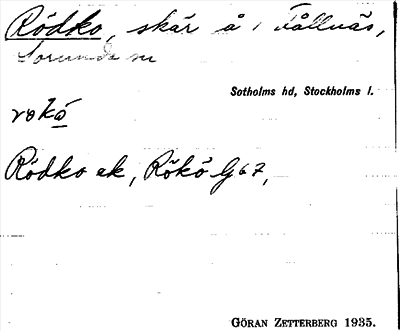 Rödko, skär å Fållnäs,
Sorunda sn
Sotholms hd, Stockholms l.
rokö
Rödko ek, Rökö G67,
GÖRAN ZETTERBERG 1935.